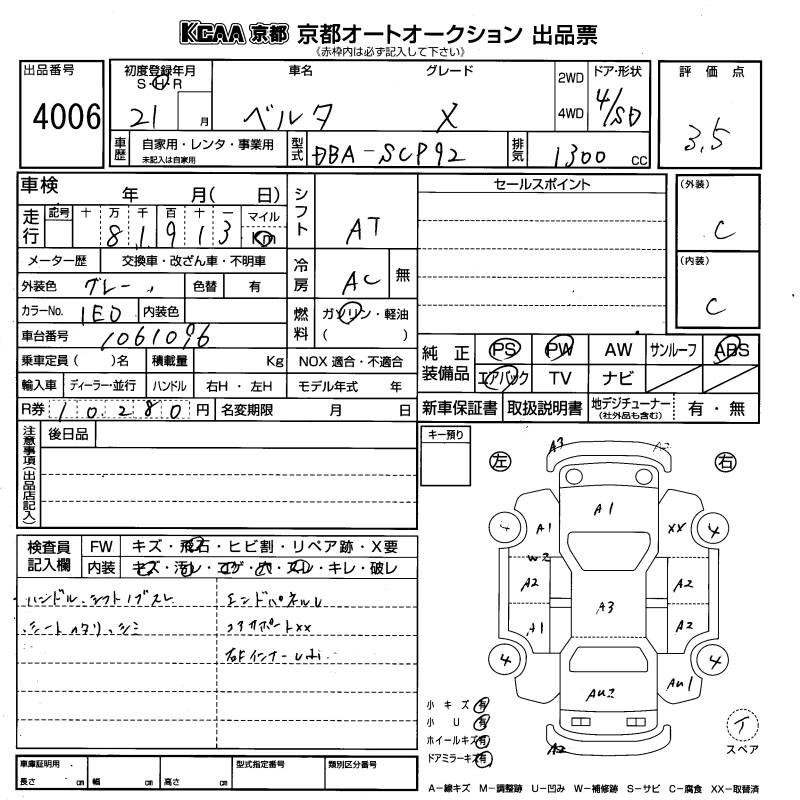 KCAA 京都 京都オートオークション 出品票
《赤枠内は必ず記入して下さい》
出品番号
4006
初度登録年月
S・H・R
21 月
車名 グレード
ベルタ X
2WD
4WD
ドア・形状
4/SD
評価点
3.5
車歴
自家用・レンタ・事業用
未記入は自家用
型式
DBA-SCP92
排気
1300 cc
車検 年 月( 日)
走行
記号 十 万 千 百 十 一 マイル
8 1 9 1 3 Km
シフト
AT
セールスポイント
(外装)
C
(内装)
C
メーター歴 交換車・改ざん車・不明車
外装色 グレー 色替 有
冷房
AC 無
カラーNo. 1E0 内装色
燃料
ガソリン・軽油
( )
車台番号 1061096
乗車定員 ( )名 積載量 Kg NOX 適合・不適合
輸入車 ディーラー・並行 ハンドル 右H・左H モデル年式 年
R券 10,280 円 名変期限 月 日
純正装備品
PS PW AW サンルーフ ABS
エアバック TV ナビ
新車保証書 取扱説明書 地デジチューナー
(社外品も含む)
有・無
注意事項(出品店記入)
後日品
キー預り
検査員
記入欄
FW キズ・飛石・ヒビ割・リペア跡・X要
内装 キズ・汚レ・コゲ・穴・スレ・キレ・破レ
ハンドル、シフトノブスレ
エンドパネルU
コアサポートXX
左 右
A3 A2
A1
4 A1 XX 4
W2
A2 A2
A3
A1 A2
4 4
AU2 AU1
A2
小キズ 有
小U 有
ホイールキズ 有
ドアミラーキズ 有
イ
スペア
車庫証明用
長さ cm 幅 cm 高さ cm
型式指定番号
類別区分番号
A-線キズ M-調整跡 U-凹み W-補修跡 S-サビ C-腐食 XX-取替済